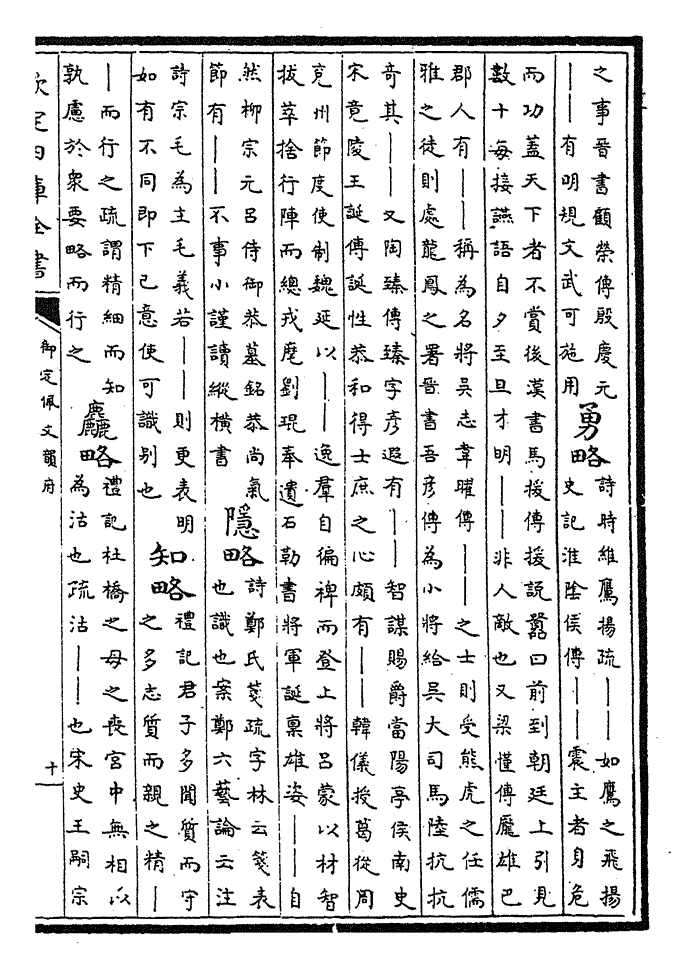 之事晉書顧榮傳殷慶元
——有明規文武可施用
勇略
詩時維鷹揚疏——如鷹之飛揚
史記淮陰侯傳——震主者自危
而功蓋天下者不賞後漢書馬援傳援說囂曰前到朝廷上引見
數十每接讌語自夕至旦才明——非人敵也又梁慬傳龎雄巴
郡人有——稱為名將吳志韋曜傳——之士則受熊虎之任儒
雅之徒則處龍鳳之署晉書吾彥傳為小將給吳大司馬陸抗抗
奇其——又陶臻傳臻字彥遐有——智謀賜爵當陽亭侯南史
宋竟陵王誕傳誕性恭和得士庶之心頗有——韓儀授葛從周
兗州節度使制魏延以——逸羣自偏裨而登上將呂蒙以材智
拔萃捨行陣而總戎麾劉琨奉遺石勒書將軍誕稟雄姿——自
然柳宗元呂侍御恭墓銘恭尚氣
節有——不事小謹讀縱橫書
隱略
詩鄭氏箋疏字林云箋表
也識也案鄭六藝論云注
詩宗毛為主毛義若——則更表明
如有不同即下已意使可識別也
知略
禮記君子多聞質而守
之多志質而親之精——
——而行之疏謂精細而知
孰慮於衆要略而行之
麤略
禮記杜橋之母之喪宮中無相以
為沽也疏沽——也宋史王嗣宗
欽定四庫全書
御定佩文韻府
十